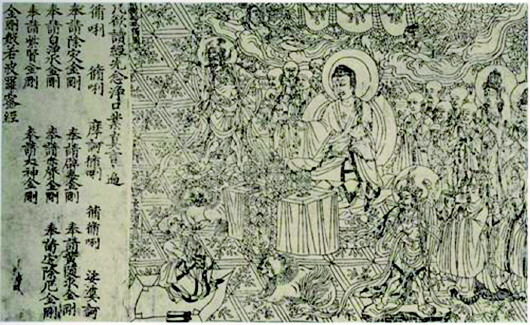 凡欲讀經先念淨口業真言一遍
脩唎 脩唎 摩訶脩唎 脩脩唎 娑婆訶
奉請除災金剛 奉請辟毒金剛 奉請黃隨求金剛
奉請 金剛 奉請赤聲金剛 奉請定除厄金剛
奉請紫賢金剛 奉請大神金剛
金剛般若波羅蜜經